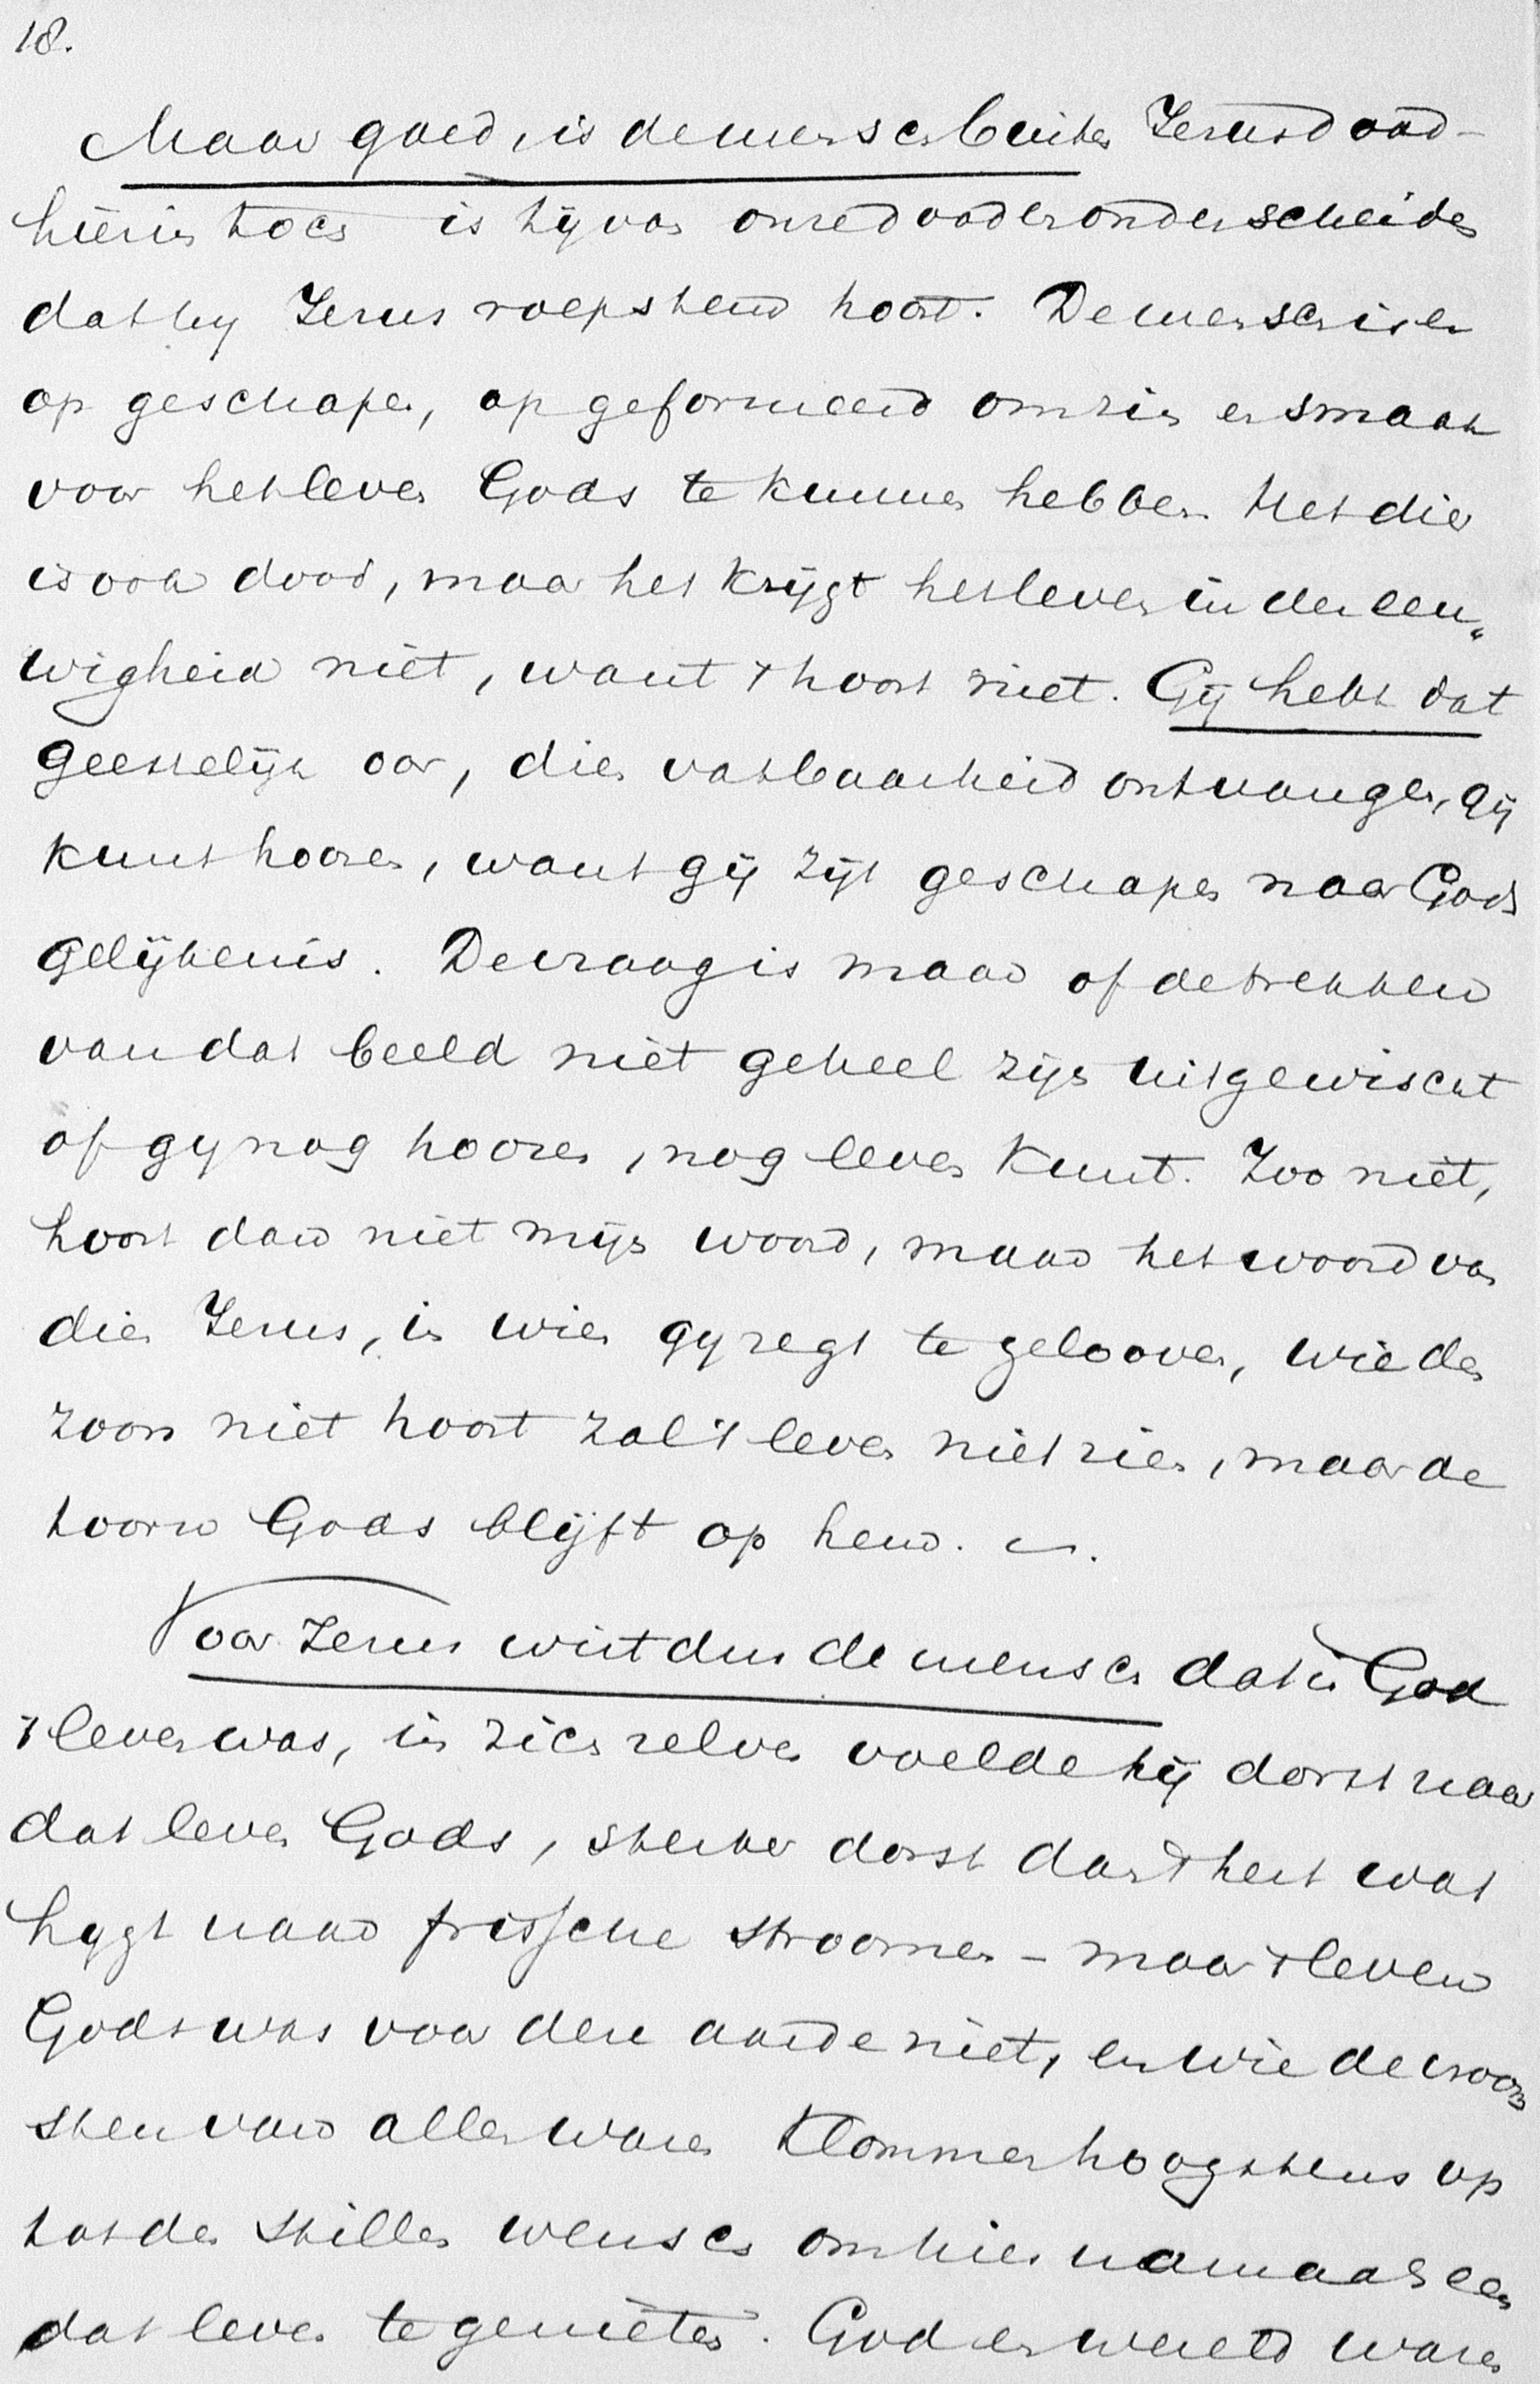 18.
Maar goed, is de mensch buiten Jezus dood -
hierin toch is hij van onze dooden onderscheiden
dat hij Jezus roepstem hoort. De mensch is er
op geschapen, op geformeerd om zin en smaak
voor het leven Gods te kunnen hebben. Het dier
is ook dood, maar het krijgt het leven in der eeu„
wigheid niet, want 't hoort niet. Gij hebt dat
geestelijk oor, die vatbaarheid ontvangen, gij
kunt hooren, want gij zijt geschapen naar Gods
gelijkenis. De vraag is maar of de trekken
van dat beeld niet geheel zijn uitgewischt
of gij nog hooren, nog leven kunt. Zoo niet,
hoort dan niet mijn woord, maar het woord van
dien Jezus, in wien gij zegt te gelooven, wie den
zoon niet hoort zal 't leven niet zien, maar de
toorn Gods blijft op hem.
Voor Jezus wist dus de mensch dat in God
't leven was, in zich zelven voelde hij dorst naar
dat leven Gods, sterker dorst dan 't hert wat
hijgt naar frissche stroomen - maar 't leven
Gods was voor deze aarde niet, en wie de vroom
sten van allen waren klommen hoogstens op
tot den stillen wensch om hier namaals een
dat leven te genieten. God en wereld waren